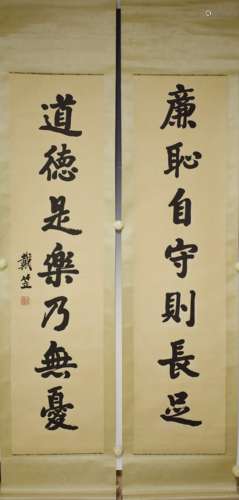 廉恥自守則長足
道德是樂乃無憂
戴笠